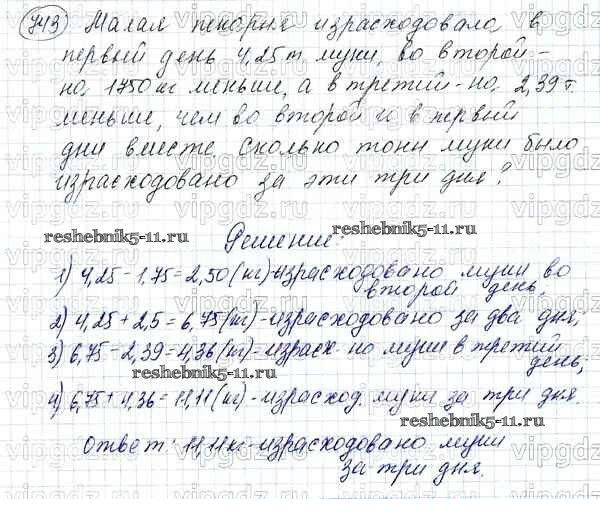 743 Малая пекарня израсходовала в
первый день 4,25 т муки, во второй -
на 1750 кг меньше, а в третий - на 2,39 т.
меньше, чем во второй и в первый
дни вместе. Сколько тонн муки было
израсходовано за эти три дня?
reshebnik5-11.ru
reshebnik5-11.ru
Решение:
1) 4,25 - 1,75 = 2,50 (кг) - израсходовано муки во
второй день,
2) 4,25 + 2,5 = 6,75 (кг) - израсходовано за два дня;
3) 6,75 - 2,39 = 4,36 (кг) - израсх-но муки в третий
день,
reshebnik5-11.ru
4) 6,75 + 4,36 = 11,11 (кг) - израсход. муки за три дня.
reshebnik5-11.ru
Ответ: 11,11 кг - израсходовано муки
за три дня.
reshebnik5-11.ru
vipgdz.ru